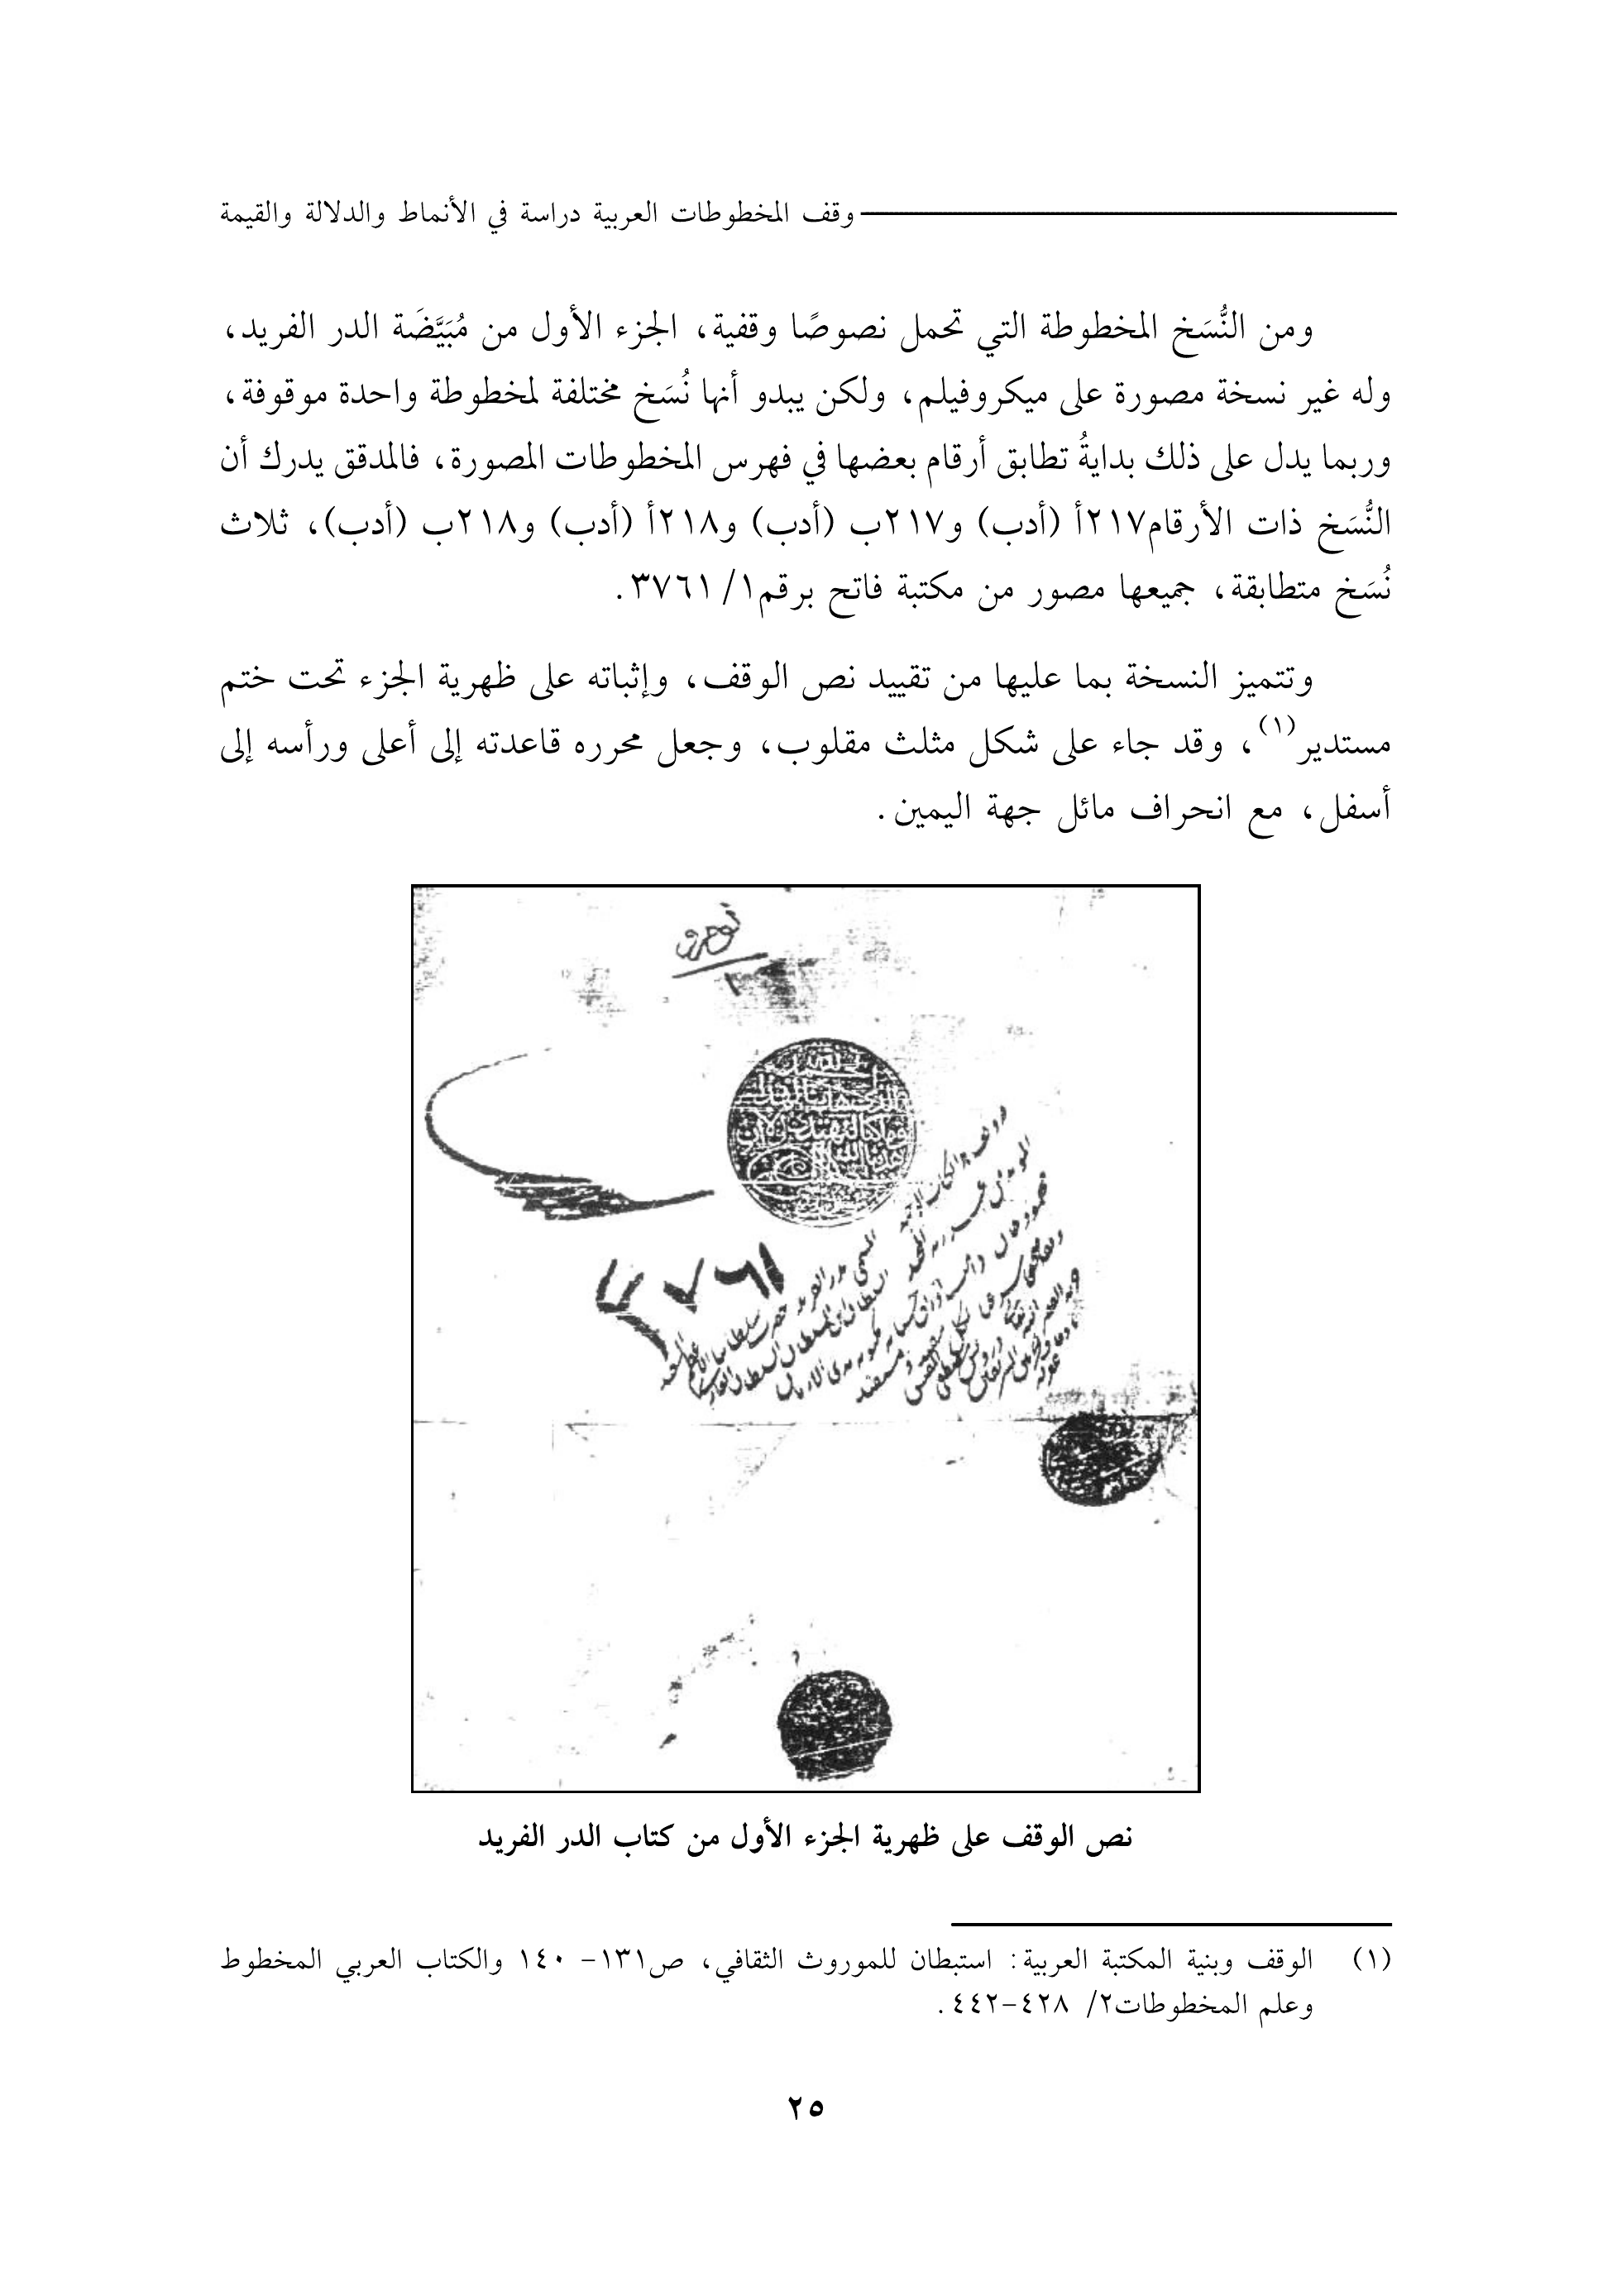 وقف المخطوطات العربية دراسة في الأنماط والدلالة والقيمة
ومن النُّسَخ المخطوطة التي تحمل نصوصًا وقفية، الجزء الأول من مُبَيَّضَة الدر الفريد،
وله غير نسخة مصورة على ميكروفيلم، ولكن يبدو أنها نُسَخ مختلفة لمخطوطة واحدة موقوفة،
وربما يدل على ذلك بدايةُ تطابق أرقام بعضها في فهرس المخطوطات المصورة، فالمدقق يدرك أن
النُّسَخ ذات الأرقام٢١٧أ (أدب) و٢١٧ب (أدب) و٢١٨أ (أدب) و٢١٨ب (أدب)، ثلاث
نُسَخ متطابقة، جميعها مصور من مكتبة فاتح برقم١/ ٣٧٦١.
وتتميز النسخة بما عليها من تقييد نص الوقف، وإثباته على ظهرية الجزء تحت ختم
مستدير(١)، وقد جاء على شكل مثلث مقلوب، وجعل محرره قاعدته إلى أعلى ورأسه إلى
أسفل، مع انحراف مائل جهة اليمين.
٣٧٦١
نص الوقف على ظهرية الجزء الأول من كتاب الدر الفريد
(١) الوقف وبنية المكتبة العربية: استبطان للموروث الثقافي، ص١٣١- ١٤٠ والكتاب العربي المخطوط
وعلم المخطوطات٢/ ٤٢٨-٤٤٢.
٢٥